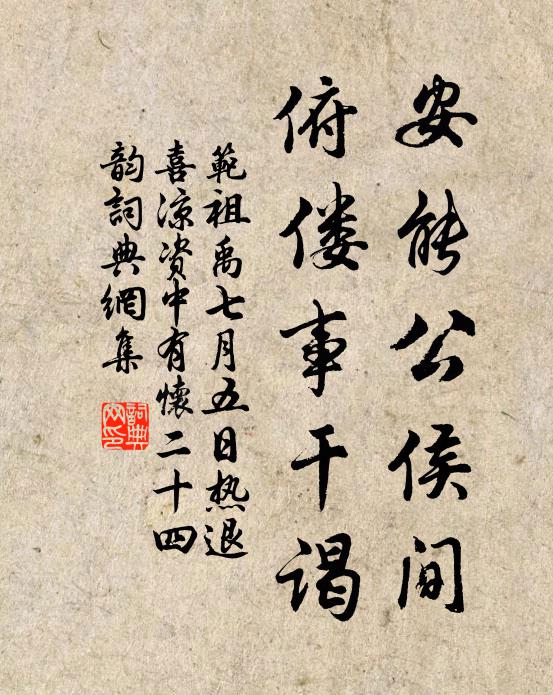 安能公侯间
俯偻事干谒
範祖禹七月五日热退
喜凉资中有懷二十四
韵詞典網集
詞典网印